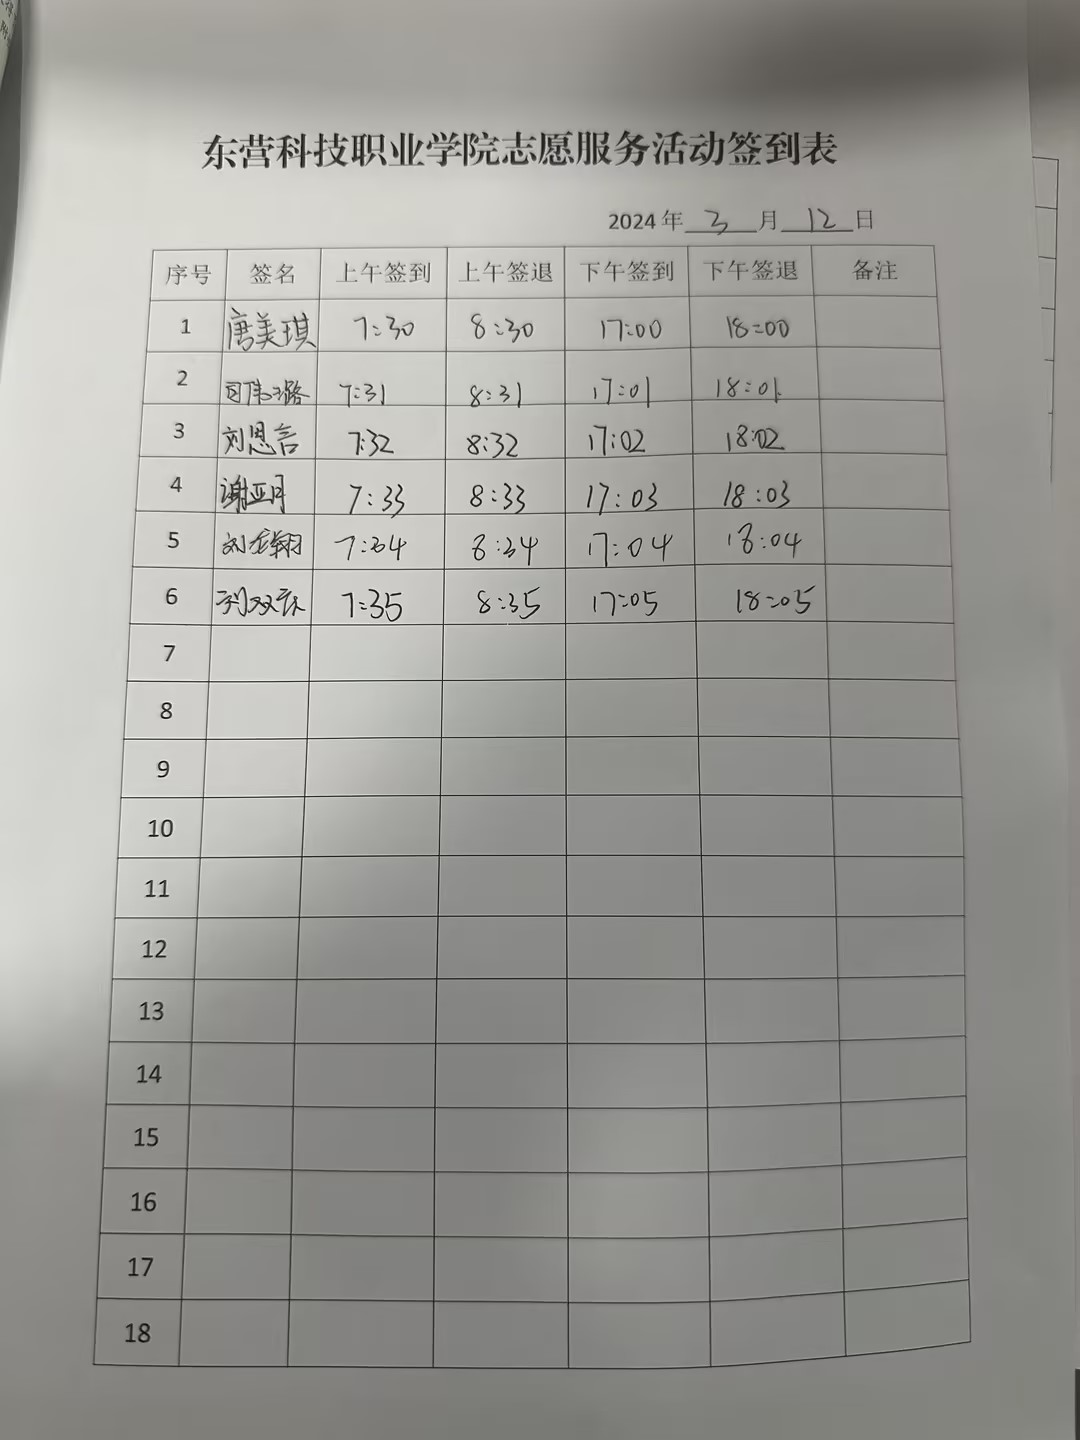 东营科技职业学院志愿服务活动签到表
2024年 3 月 12 日
序号 签名 上午签到 上午签退 下午签到 下午签退 备注
1 唐美琪 7:30 8:30 17:00 18:00
2 7:31 8:31 17:01 18:01
3 刘恩言 7:32 8:32 17:02 18:02
4 谢亚月 7:33 8:33 17:03 18:03
5 7:34 8:34 17:04 18:04
6 7:35 8:35 17:05 18:05
7
8
9
10
11
12
13
14
15
16
17
18